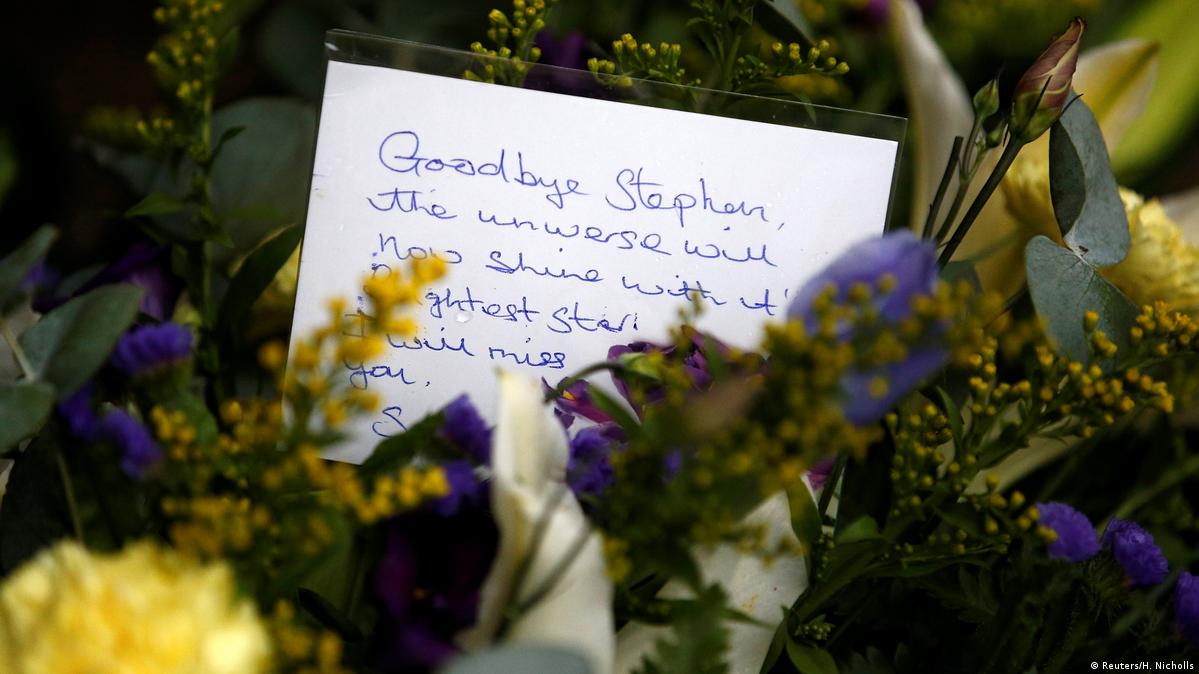 Goodbye Stephen,
the universe will
now shine with it'
ghtest star
I will miss
you.
S
© Reuters/H. Nicholls